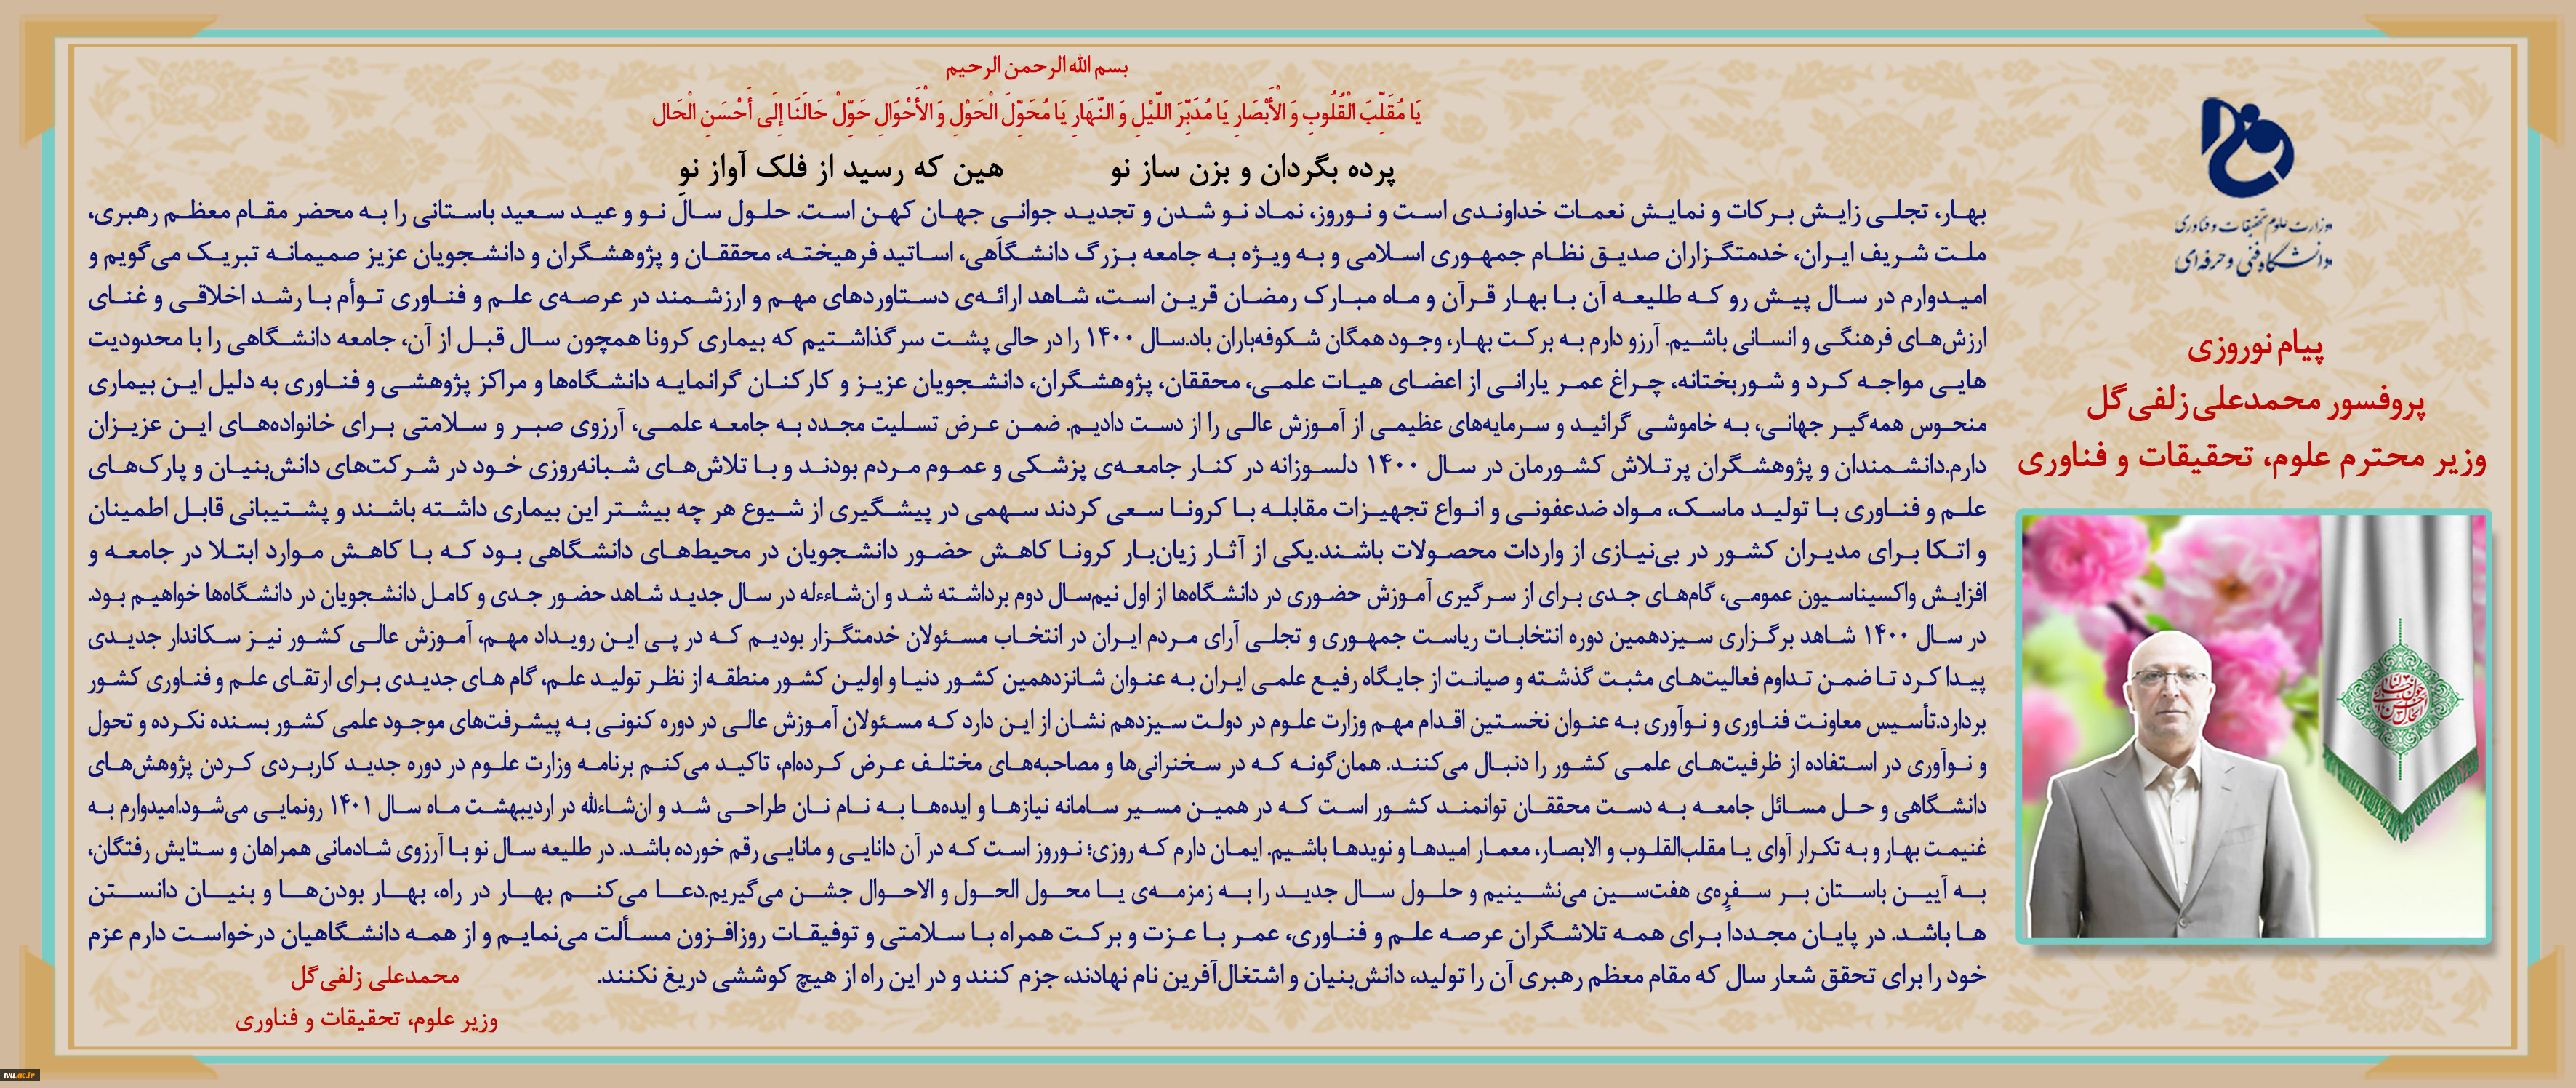 بسم الله الرحمن الرحیم
یَا مُقَلِّبَ الْقُلُوبِ وَ الْأَبْصَارِ یَا مُدَبِّرَ اللَّیْلِ وَ النَّهَارِ یَا مُحَوِّلَ الْحَوْلِ وَ الْأَحْوَالِ حَوِّلْ حَالَنَا إِلَی أَحْسَنِ الْحَال
پرده بگردان و بزن ساز نو هین که رسید از فلک آواز نو
بهار، تجلی زایش برکات و نمایش نعمات خداوندی است و نوروز، نماد نو شدن و تجدید جوانی جهان کهن است. حلول سال نو و عید سعید باستانی را به محضر مقام معظم رهبری،
ملت شریف ایران، خدمتگزاران صدیق نظام جمهوری اسلامی و به ویژه به جامعه بزرگ دانشگاهی، اساتید فرهیخته، محققان و پژوهشگران و دانشجویان عزیز صمیمانه تبریک می‌گویم و
امیدوارم در سال پیش رو که طلیعه آن با بهار قرآن و ماه مبارک رمضان قرین است، شاهد ارائه‌ی دستاوردهای مهم و ارزشمند در عرصه‌ی علم و فناوری توأم با رشد اخلاقی و غنای
ارزش‌های فرهنگی و انسانی باشیم. آرزو دارم به برکت بهار، وجود همگان شکوفه‌باران باد.سال ۱۴۰۰ را در حالی پشت سر گذاشتیم که بیماری کرونا همچون سال قبل از آن، جامعه دانشگاهی را با محدودیت
هایی مواجه کرد و شوربختانه، چراغ عمر یارانی از اعضای هیات علمی، محققان، پژوهشگران، دانشجویان عزیز و کارکنان گرانمایه دانشگاه‌ها و مراکز پژوهشی و فناوری به دلیل این بیماری
منحوس همه‌گیر جهانی، به خاموشی گرائید و سرمایه‌های عظیمی از آموزش عالی را از دست دادیم. ضمن عرض تسلیت مجدد به جامعه علمی، آرزوی صبر و سلامتی برای خانواده‌های این عزیزان
دارم.دانشمندان و پژوهشگران پرتلاش کشورمان در سال ۱۴۰۰ دلسوزانه در کنار جامعه‌ی پزشکی و عموم مردم بودند و با تلاش‌های شبانه‌روزی خود در شرکت‌های دانش‌بنیان و پارک‌های
علم و فناوری با تولید ماسک، مواد ضدعفونی و انواع تجهیزات مقابله با کرونا سعی کردند سهمی در پیشگیری از شیوع هر چه بیشتر این بیماری داشته باشند و پشتیبانی قابل اطمینان
و اتکا برای مدیران کشور در بی‌نیازی از واردات محصولات باشند.یکی از آثار زیان‌بار کرونا کاهش حضور دانشجویان در محیط‌های دانشگاهی بود که با کاهش موارد ابتلا در جامعه و
افزایش واکسیناسیون عمومی، گام‌های جدی برای از سرگیری آموزش حضوری در دانشگاه‌ها از اول نیم‌سال دوم برداشته شد و ان‌شاءءله در سال جدید شاهد حضور جدی و کامل دانشجویان در دانشگاه‌ها خواهیم بود.
در سال ۱۴۰۰ شاهد برگزاری سیزدهمین دوره انتخابات ریاست جمهوری و تجلی آرای مردم ایران در انتخاب مسئولان خدمتگزار بودیم که در پی این رویداد مهم، آموزش عالی کشور نیز سکاندار جدیدی
پیدا کرد تا ضمن تداوم فعالیت‌های مثبت گذشته و صیانت از جایگاه رفیع علمی ایران به عنوان شانزدهمین کشور دنیا و اولین کشور منطقه از نظر تولید علم، گام های جدیدی برای ارتقای علم و فناوری کشور
بردارد.تأسیس معاونت فناوری و نوآوری به عنوان نخستین اقدام مهم وزارت علوم در دولت سیزدهم نشان از این دارد که مسئولان آموزش عالی در دوره کنونی به پیشرفت‌های موجود علمی کشور بسنده نکرده و تحول
و نوآوری در استفاده از ظرفیت‌های علمی کشور را دنبال می‌کنند. همان‌گونه که در سخنرانی‌ها و مصاحبه‌های مختلف عرض کرده‌ام، تاکید می‌کنم برنامه وزارت علوم در دوره جدید کاربردی کردن پژوهش‌های
دانشگاهی و حل مسائل جامعه به دست محققان توانمند کشور است که در همین مسیر سامانه نیازها و ایده‌ها به نام نان طراحی شد و ان‌شاءالله در اردیبهشت ماه سال ۱۴۰۱ رونمایی می‌شود.امیدوارم به
غنیمت بهار و به تکرار آوای یا مقلب‌القلوب و الابصار، معمار امیدها و نویدها باشیم. ایمان دارم که روزی؛ نوروز است که در آن دانایی و مانایی رقم خورده باشد. در طلیعه سال نو با آرزوی شادمانی همراهان و ستایش رفتگان،
به آیین باستان بر سفره‌ی هفت‌سین می‌نشینیم و حلول سال جدید را به زمزمه‌ی یا محول الحول و الاحوال جشن می‌گیریم.دعا می‌کنم بهار در راه، بهار بودن‌ها و بنیان دانستن
ها باشد. در پایان مجدداً برای همه تلاشگران عرصه علم و فناوری، عمر با عزت و برکت همراه با سلامتی و توفیقات روزافزون مسألت می‌نمایم و از همه دانشگاهیان درخواست دارم عزم
خود را برای تحقق شعار سال که مقام معظم رهبری آن را تولید، دانش‌بنیان و اشتغال‌آفرین نام نهادند، جزم کنند و در این راه از هیچ کوششی دریغ نکنند.
محمدعلی زلفی‌گل
وزیر علوم، تحقیقات و فناوری
وزارت علوم تحقیقات و فناوری
دانشگاه فنی و حرفه‌ای
پیام نوروزی
پروفسور محمدعلی زلفی‌گل
وزیر محترم علوم، تحقیقات و فناوری
tvu.ac.ir